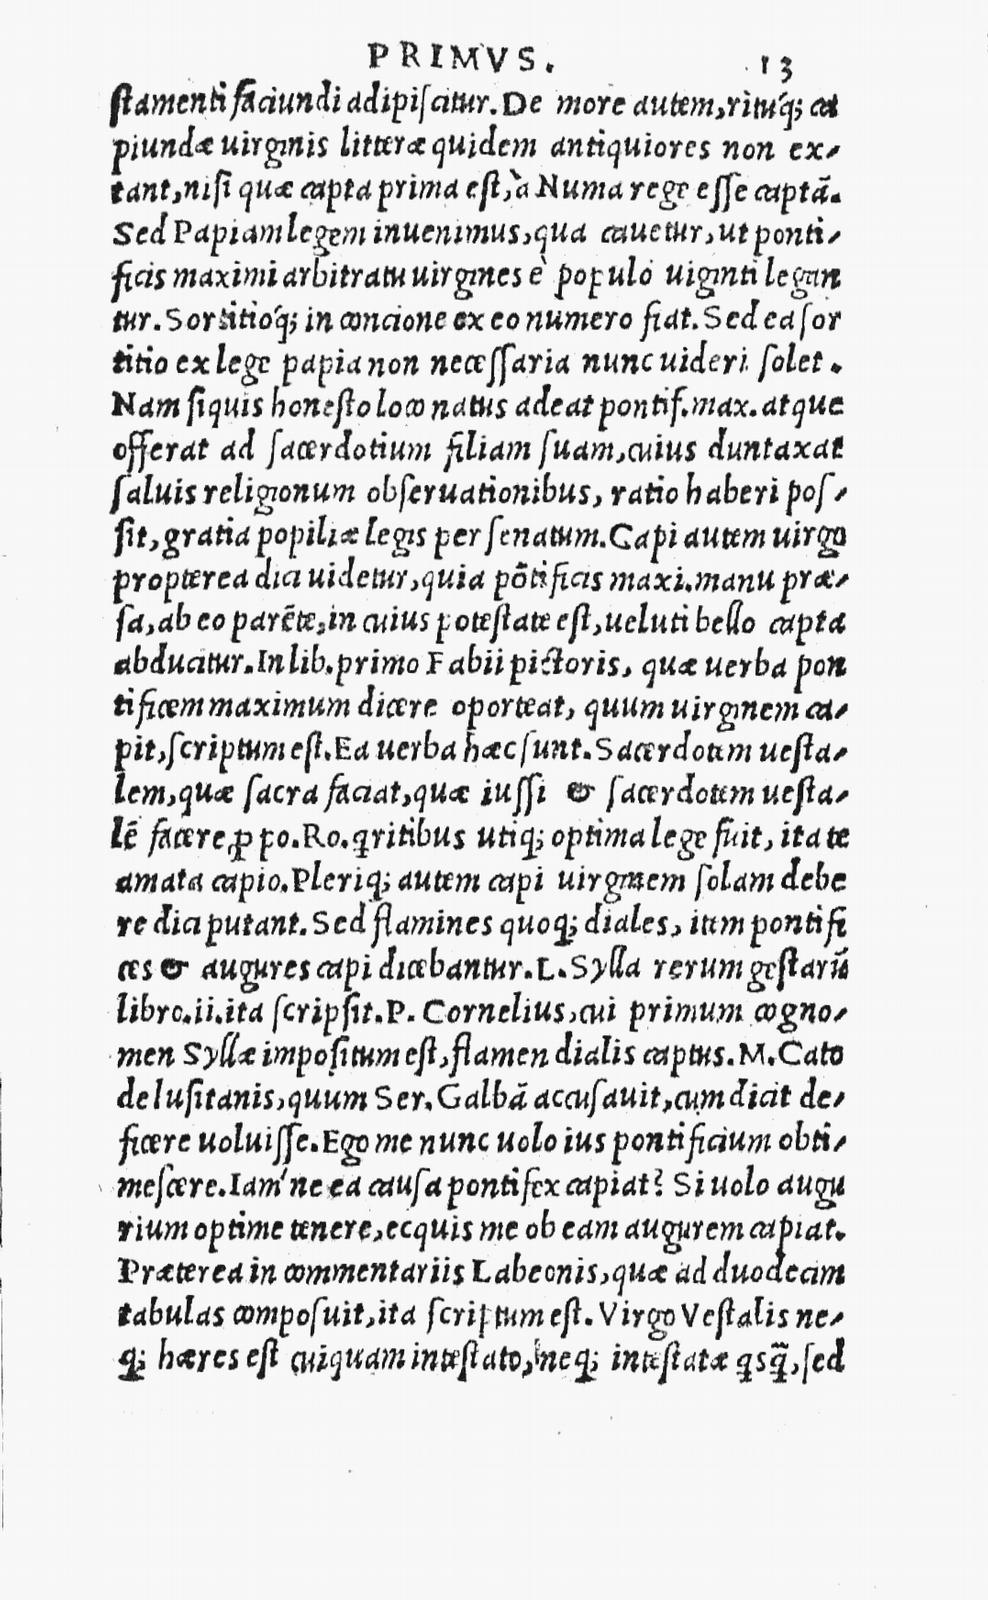 PRIMVS. 13
ſtamenti faciundi adipiſcitur. De more autem, ritúq; ca
piundæ uirginis litteræ quidem antiquiores non ex-
tant, niſi quæ capta prima eſt, à Numa rege eſſe captã.
Sed Papiam legem inuenimus, qua cauetur, ut ponti-
ficis maximi arbitratu uirgines è populo uiginti legan
tur. Sortitióq; in concione ex eo numero fiat. Sed ea ſor
titio ex lege papia non neceſſaria nunc uideri ſolet.
Nam ſiquis honeſto loco natus adeat pontif. max. atque
offerat ad ſacerdotium filiam ſuam, cuius duntaxat
ſaluis religionum obſeruationibus, ratio haberi poſ-
ſit, gratia popiliæ legis per ſenatum. Capi autem uirgo
propterea dici uidetur, quia põtificis maxi. manu præ-
ſa, ab eo parẽte, in cuius poteſtate eſt, ueluti bello capta
abducitur. In lib. primo Fabii pictoris, quæ uerba pon
tificem maximum dicere oporteat, quum uirginem ca-
pit, ſcriptum eſt. Ea uerba hæc ſunt. Sacerdotem ueſta-
lem, quæ ſacra faciat, quæ iuſſi & ſacerdotem ueſta-
lẽ facere, ꝑ po. Ro. q̃ritibus utiq; optima lege fuit, ita te
amata capio. Pleriq; autem capi uirginem ſolam debe
re dici putant. Sed flamines quoq; diales, item pontifi
ces & augures capi dicebantur. L. Sylla rerum geſtarũ
libro. ii. ita ſcripſit. P. Cornelius, cui primum cogno-
men Syllæ impoſitum eſt, flamen dialis captus. M. Cato
de luſitanis, quum Ser. Galbã accuſauit, cum dicit de-
ficere uoluiſſe. Ego me nunc uolo ius pontificium obti-
meſcere. Iam' ne ea cauſa pontifex capiat? Si uolo augu
rium optime tenere, ecquis me ob eam augurem capiat.
Præterea in commentariis Labeonis, quæ ad duodecim
tabulas compoſuit, ita ſcriptum eſt. Virgo Veſtalis ne-
q; hæres eſt cuiquam inteſtato, neq; inteſtatæ q̃sq̃, ſed